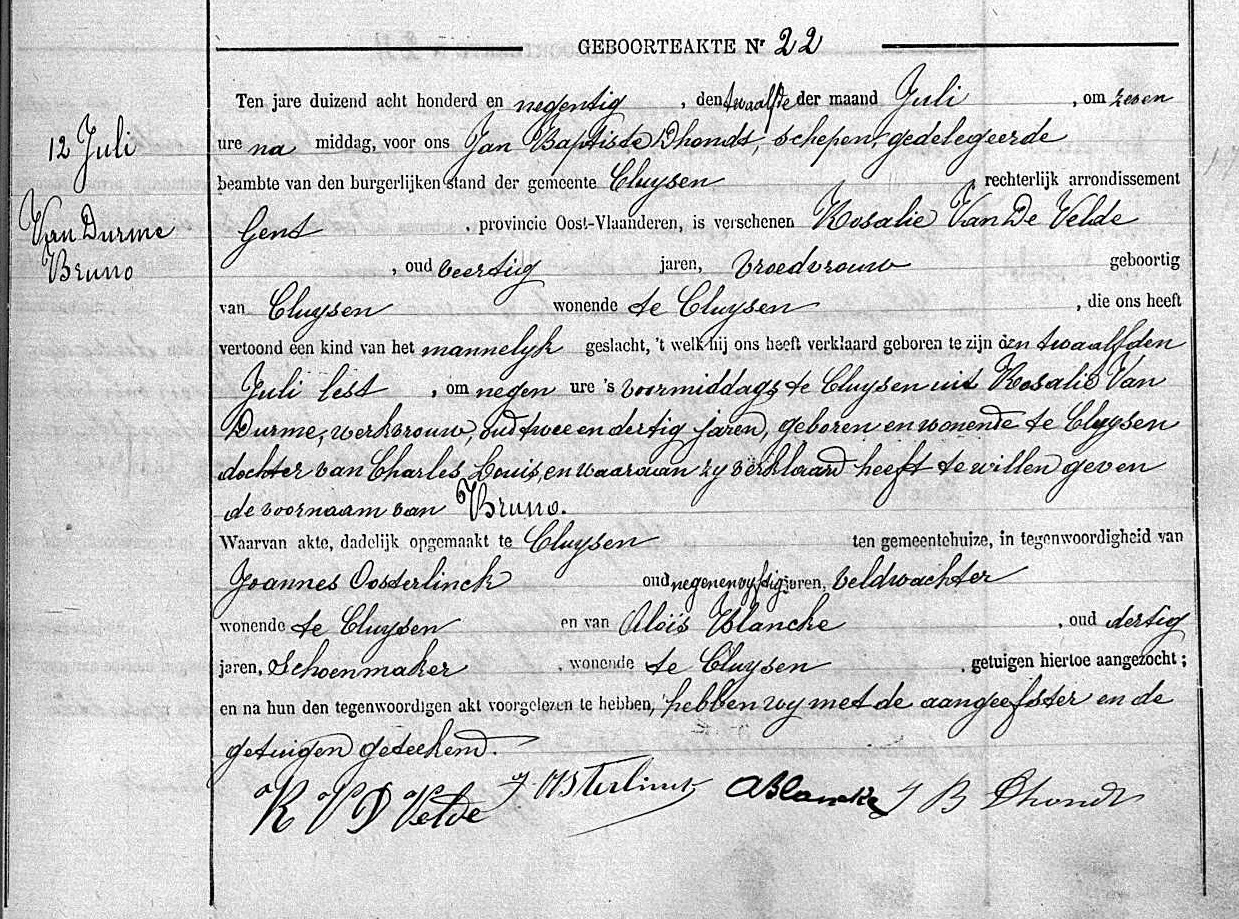 GEBOORTEAKTE Nr 22
12 Juli
Van Durme
Bruno
Ten jare duizend acht honderd en negentig, den twaalfde der maand Juli, om zeven
ure na middag, voor ons Jan Baptiste Dhondt, schepen, gedelegeerde
beambte van den burgerlijken stand der gemeente Cluysen, rechterlijk arrondissement
Gent, provincie Oost-Vlaanderen, is verschenen Rosalie Van De Velde
, oud veertig jaren, vroedvrouw geboortig
van Cluysen wonende te Cluysen, die ons heeft
vertoond een kind van het mannelyk geslacht, 't welk hij ons heeft verklaard geboren te zijn den twaalfden
Juli lest, om negen ure 's voormiddags te Cluysen uit Rosalie Van
Durme, werkvrouw, oud twee en dertig jaren, geboren en wonende te Cluysen
dochter van Charles Louis, en waaraan zy verklaard heeft te willen geven
de voornaam van Bruno.
Waarvan akte, dadelijk opgemaakt te Cluysen ten gemeentehuize, in tegenwoordigheid van
Joannes Oosterlinck oud negenenvyftig jaren, veldwachter
wonende te Cluysen en van Aloïs Blancke, oud dertig
jaren, Schoenmaker, wonende te Cluysen, getuigen hiertoe aangezocht;
en na hun den tegenwoordigen akt voorgelezen te hebben, hebben wy met de aangeefster en de
getuigen geteekend.
R V D Velde J. Osterlinck A Blancke J B Dhondt